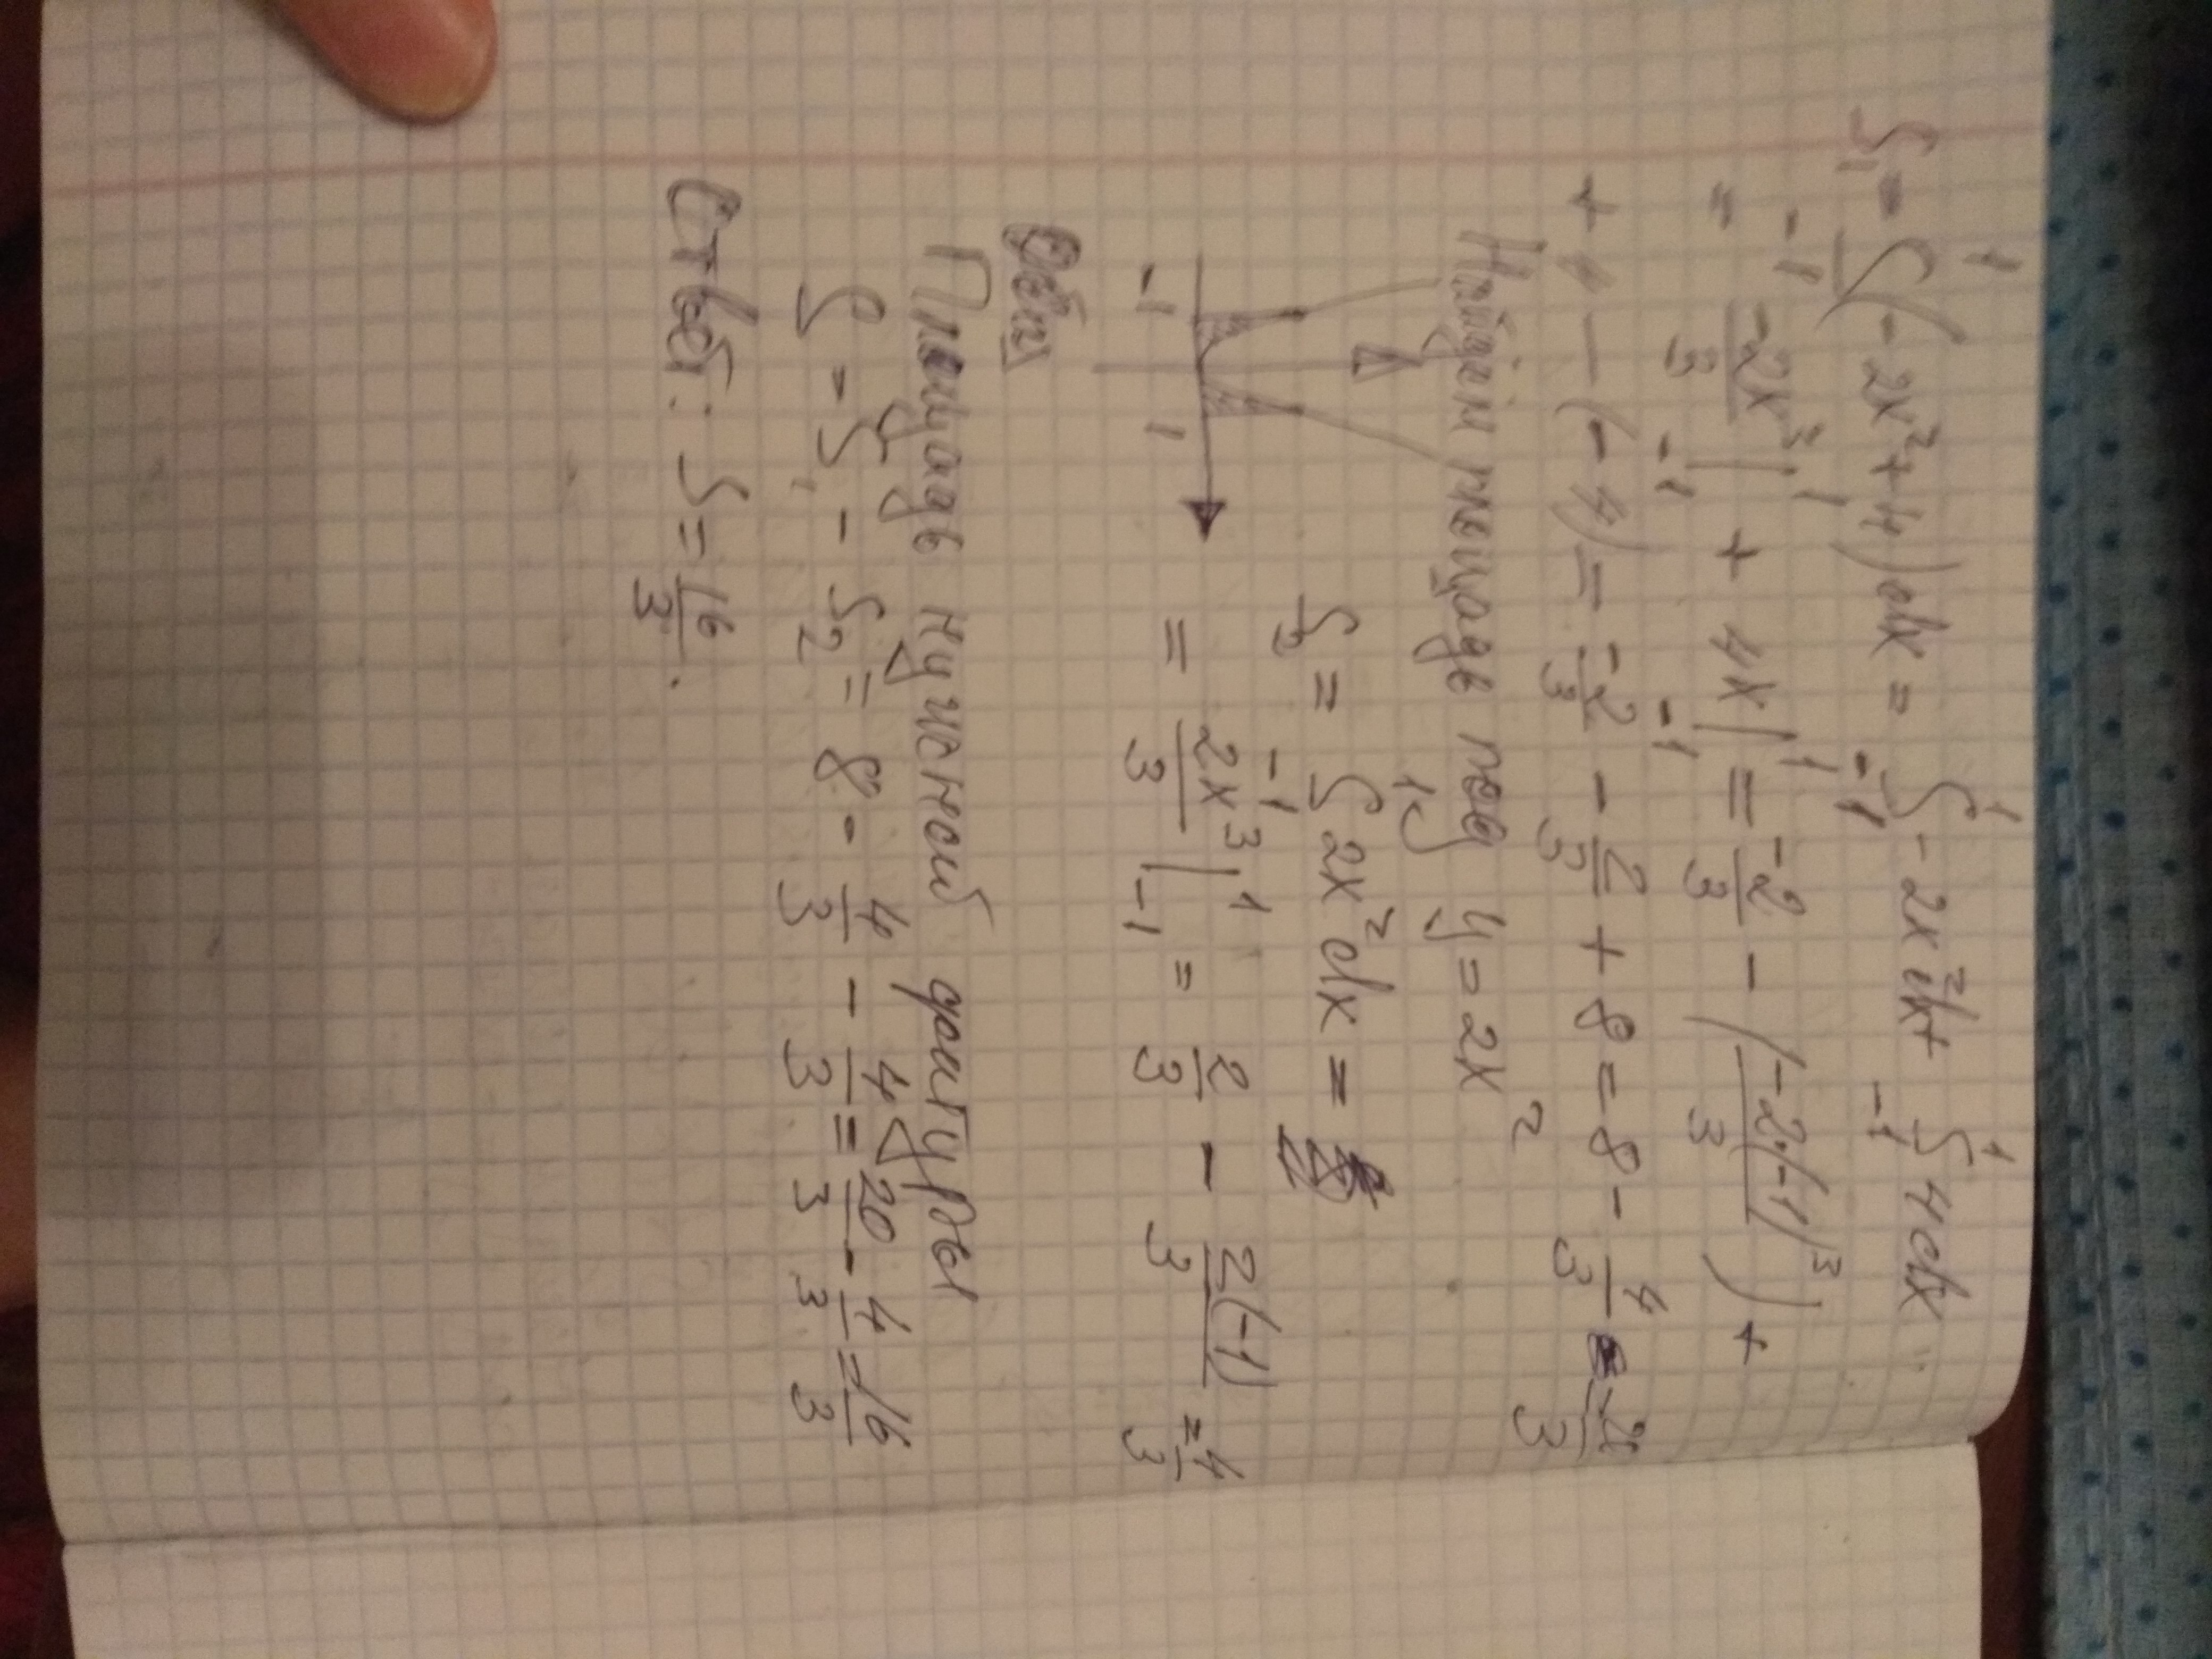 S₁ = ∫₋₁¹ (-2x² + 4)dx = ∫₋₁¹ -2x²dx + ∫₋₁¹ 4dx
= -2x³/3 |₋₁¹ + 4x |₋₁¹ = -2/3 - (-2·(-1)³/3) +
+ 4 - (-4) = -2/3 - 2/3 + 8 = 8 - 4/3
Найдём площадь под y = 2x²
S₂ = ∫₋₁¹ 2x²dx =
= 2x³/3 |₋₁¹ = 2/3 - 2(-1)/3 = 4/3
-1 1
Площадь нужной фигуры
S = S₁ - S₂ = 8 - 4/3 - 4/3 = 20/3 - 4/3 = 16/3
Ответ: S = 16/3.